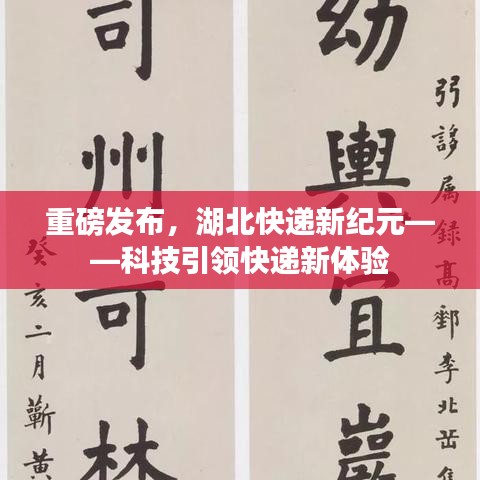 弜誃属録高鄭李北岳
幼輿宜巖
司州可林
癸亥二月蘄黄
重磅发布，湖北快递新纪元—
—科技引领快递新体验